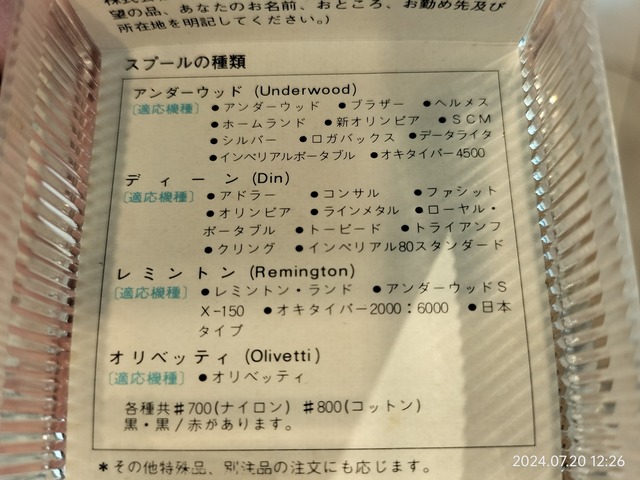 望の品、あなたのお名前、おところ、お勤め先及び
所在地を明記してください。)
スプールの種類
アンダーウッド (Underwood)
〔適応機種〕 ●アンダーウッド ●ブラザー ●ヘルメス
●ホームランド ●新オリンピア ●SCM
●シルバー ●ロガバックス ●データライタ
●インペリアルポータブル ●オキタイパー4500
ディーン (Din)
〔適応機種〕 ●アドラー ●コンサル ●ファシット
●オリンピア ●ラインメタル ●ローヤル・
ポータブル ●トーピード ●トライアンフ
●クリング ●インペリアル80スタンダード
レミントン (Remington)
〔適応機種〕 ●レミントン・ランド ●アンダーウッドS
X-150 ●オキタイパー2000:6000 ●日本
タイプ
オリベッティ (Olivetti)
〔適応機種〕 ●オリベッティ
各種共#700(ナイロン) #800(コットン)
黒・黒/赤があります。
*その他特殊品、別注品の注文にも応じます。
2024.07.20 12:26